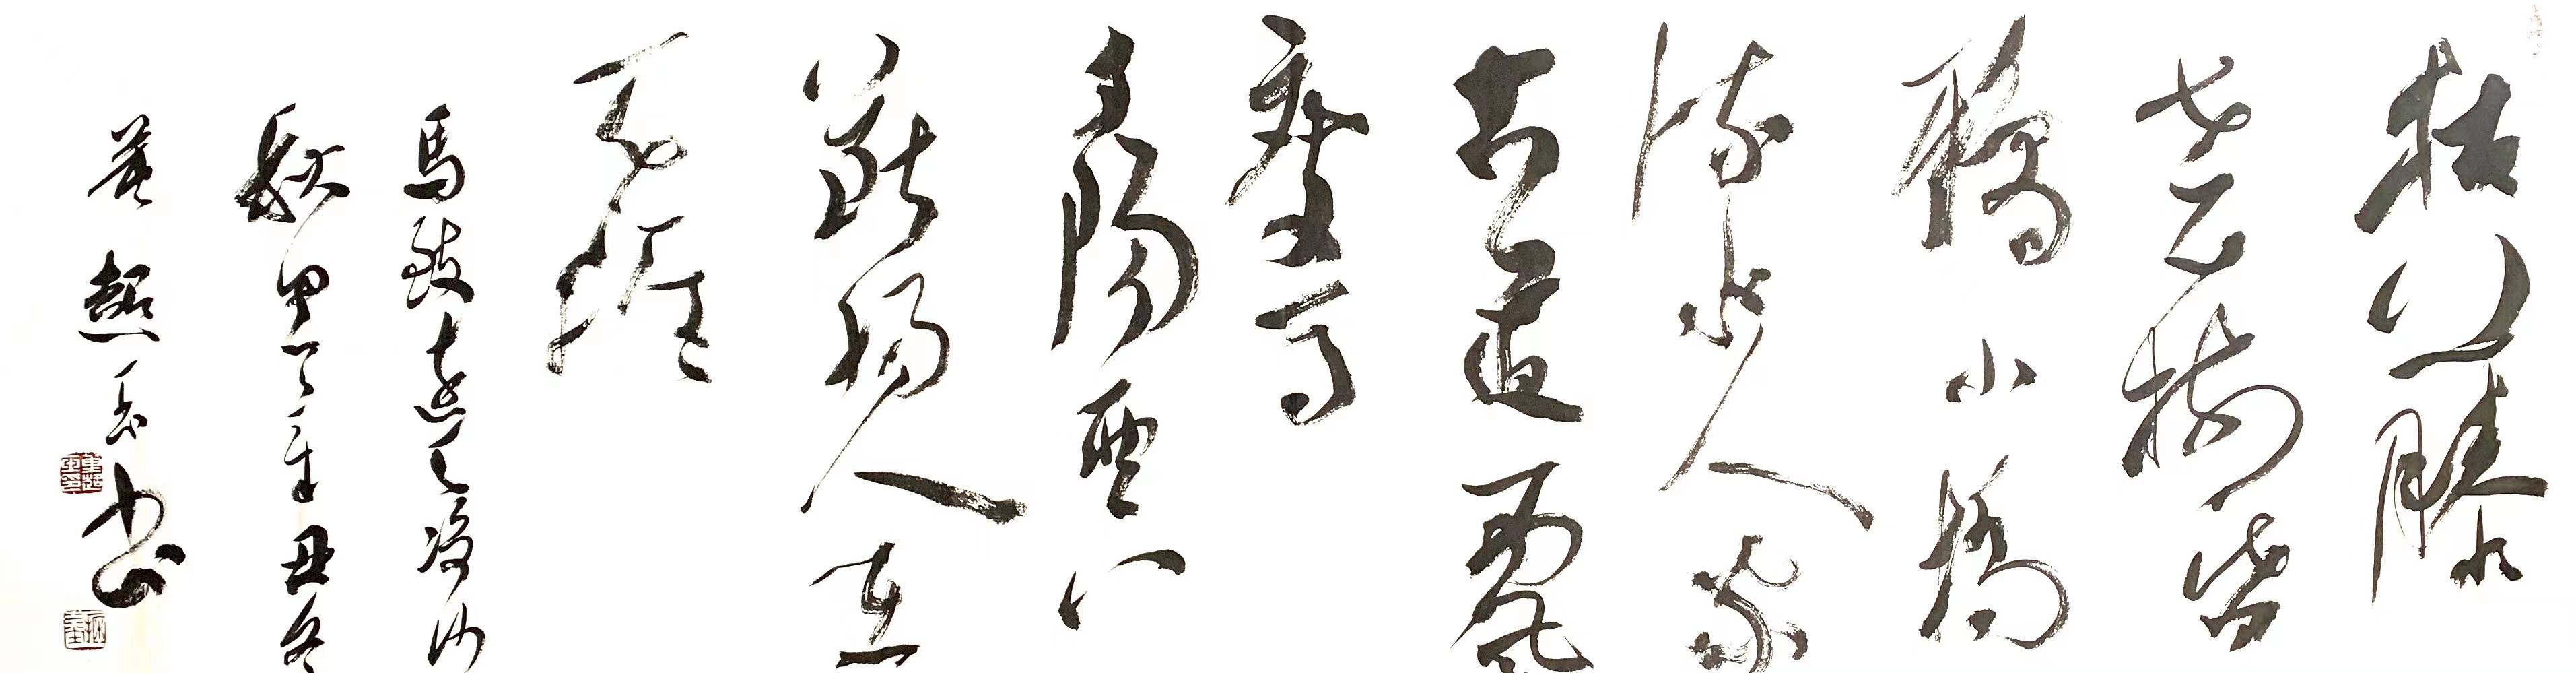 枯藤
老树昏
鸦小桥
流水人家
古道西风
瘦马
夕阳西下
断肠人在
天涯
馬致遠天净沙
秋思 辛丑冬
超 书